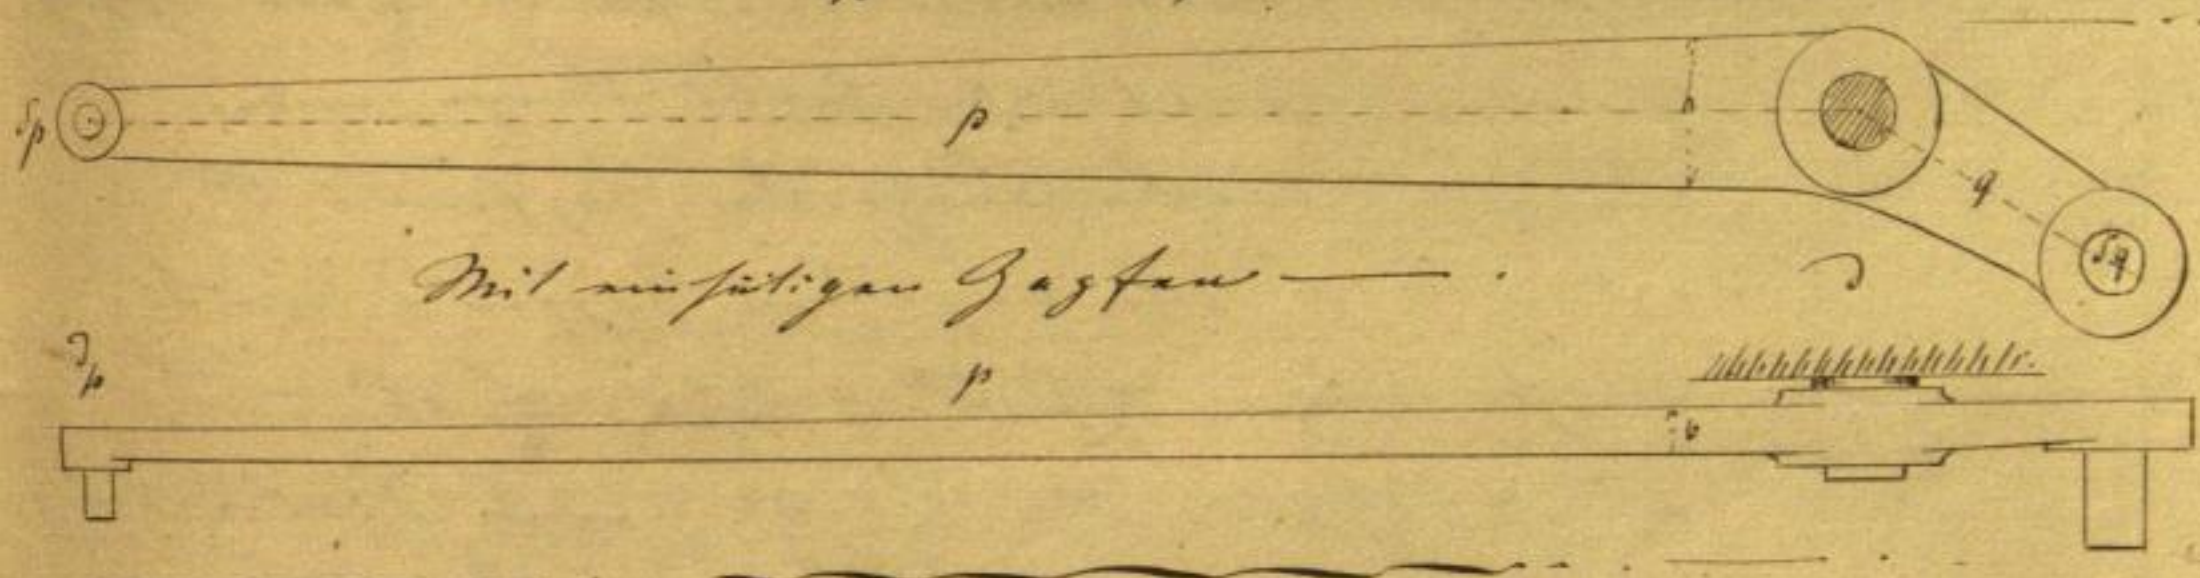 δp
p
h
q
δq
Mit einseitigen Zapfen
δ
δp
p
b